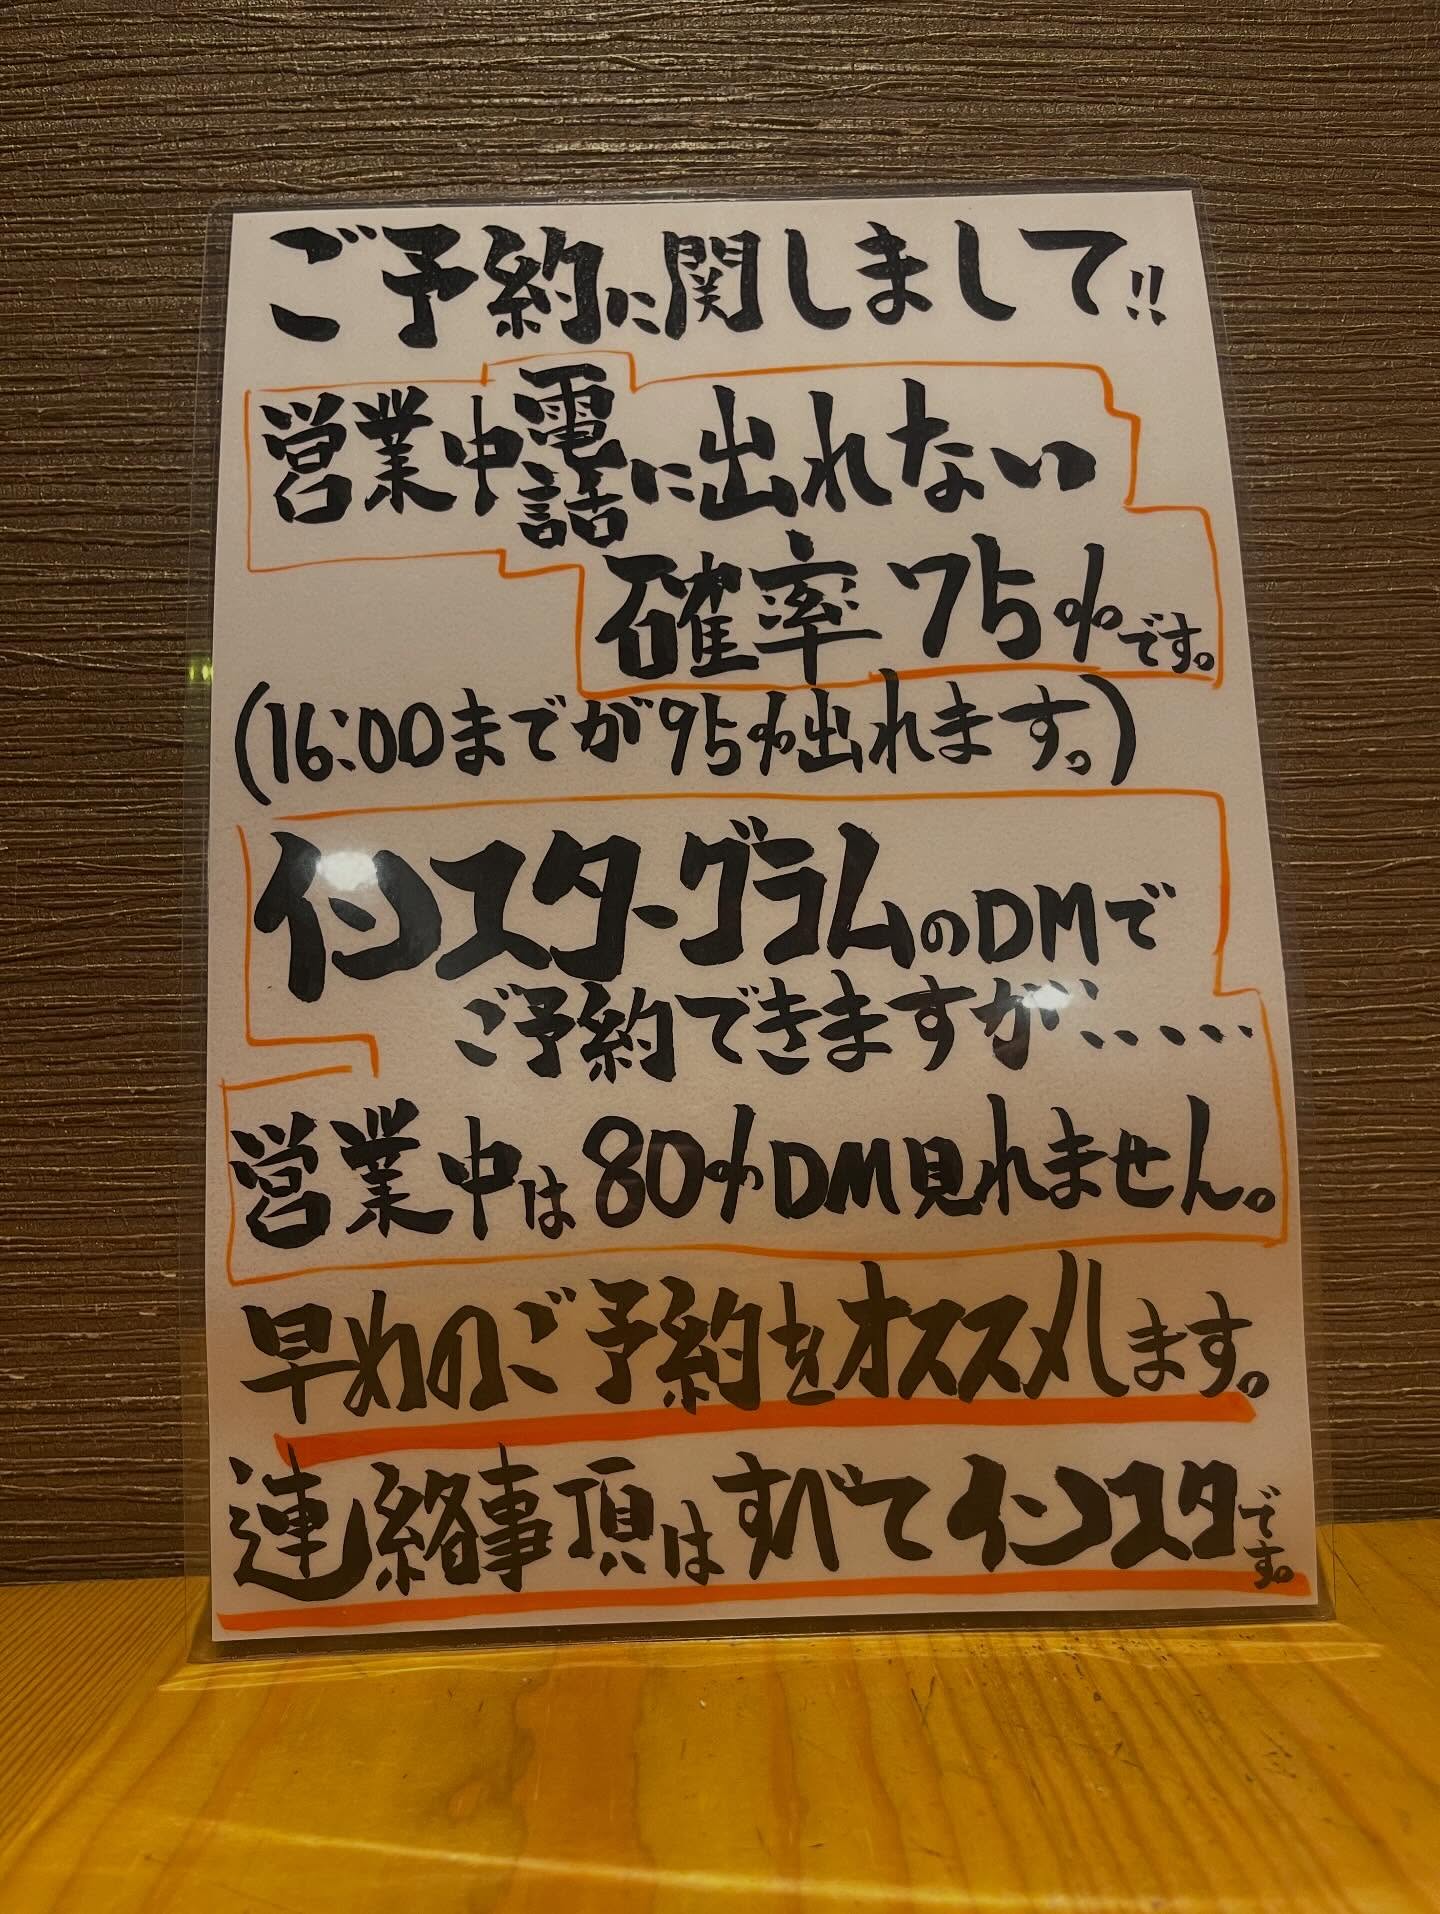 ご予約に関しまして!!
営業中電話に出れない
確率75%です。
(16:00までが95%出れます。)
インスターグラムのDMで
ご予約できますが、、、、、
営業中は80%DM見れません。
早めのご予約をオススメします。
連絡事項はすべてインスタです。